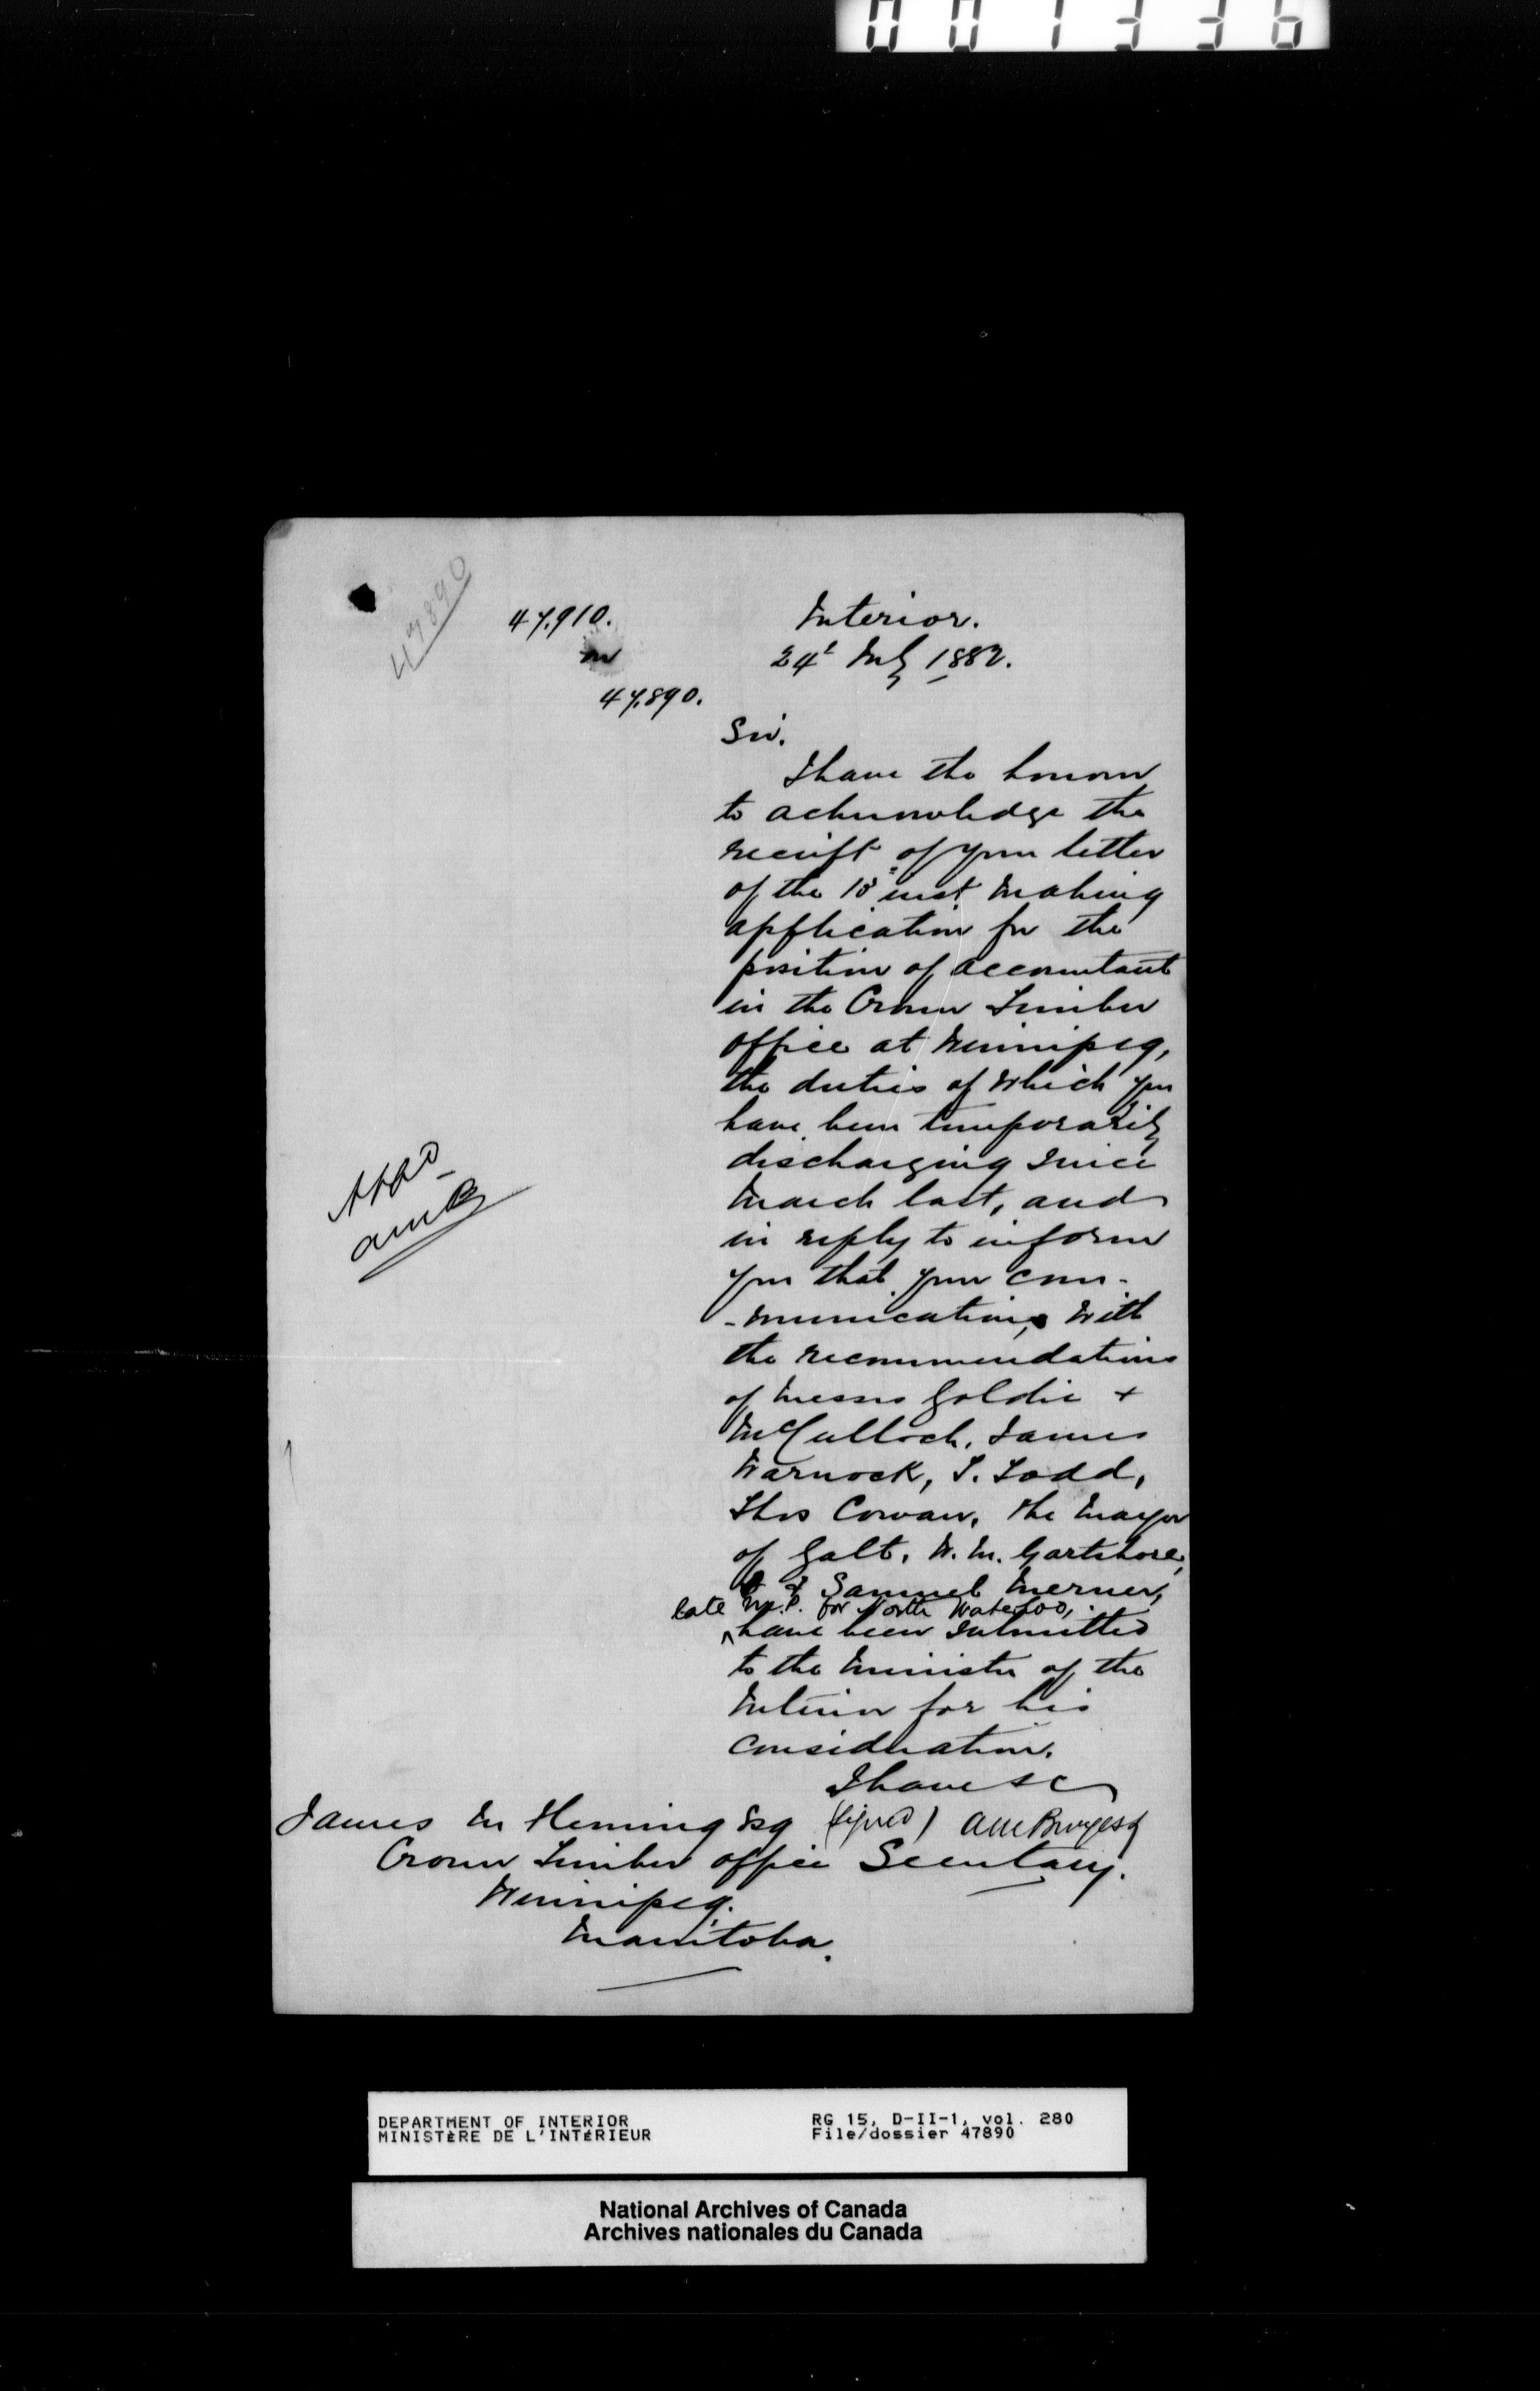 001336
47890
47.910.
on
47.890.
Interior.
24t July 1882.
Sir.
I have the honour
to acknowledge the
receipt of your letter
of the 15 inst making
application for the
position of accountant
in the Crown Timber
office at Winnipeg,
the duties of which you
have been temporarily
discharging since
March last, and
in reply to inform
you that your com-
-munication, with
the recommendations
of Messrs Goldie +
McCulloch, James
Warnock, T. Todd,
Thos Cowan, the Mayor
of Galt, W. M. Gartshore,
& Samuel Merner,
late M.P. for North Waterloo,
have been submitted
to the Minister of the
Interior for his
consideration.
I have &c
(signed) AMBurgess
Secretary.
James M Fleming Esq
Crown Timber office
Winnipeg.
Manitoba.
AMB
DEPARTMENT OF INTERIOR
MINISTÈRE DE L'INTÉRIEUR
RG 15, D-II-1, vol. 280
File/dossier 47890
National Archives of Canada
Archives nationales du Canada